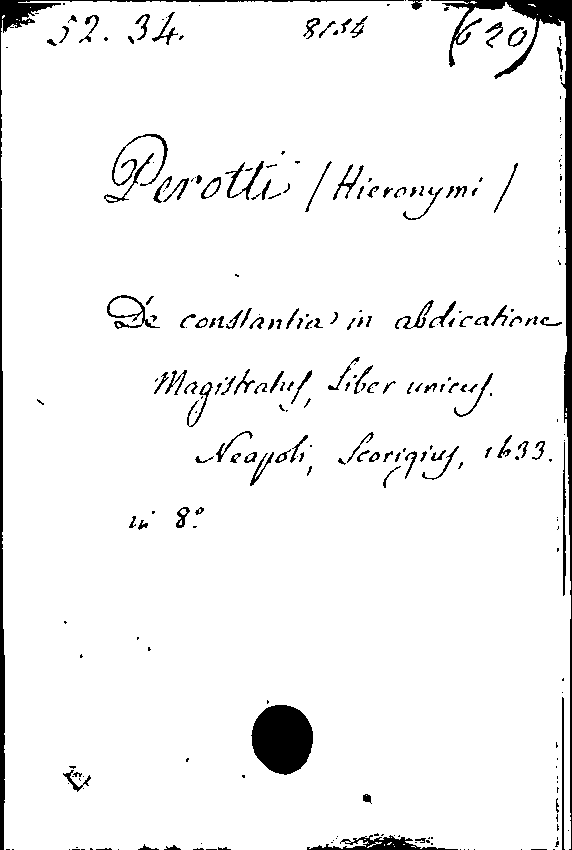 52. 34. 8134 (620)
Perotti / Hieronymi /
De constantia in abdicatione
Magistratus, Liber unicus.
Neapoli, Scorigius, 1633.
in 8°